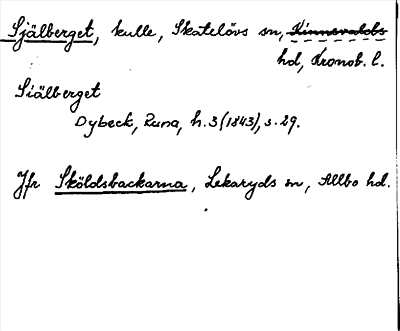 Själberget, kulle, Skatelövs sn, Kinnevalds
hd, Kronob. l.
Siälberget
Dybeck, Runa, h. 3 (1843), s. 29.
Jfr Sköldsbackarna, Lekaryds sn, Allbo hd.